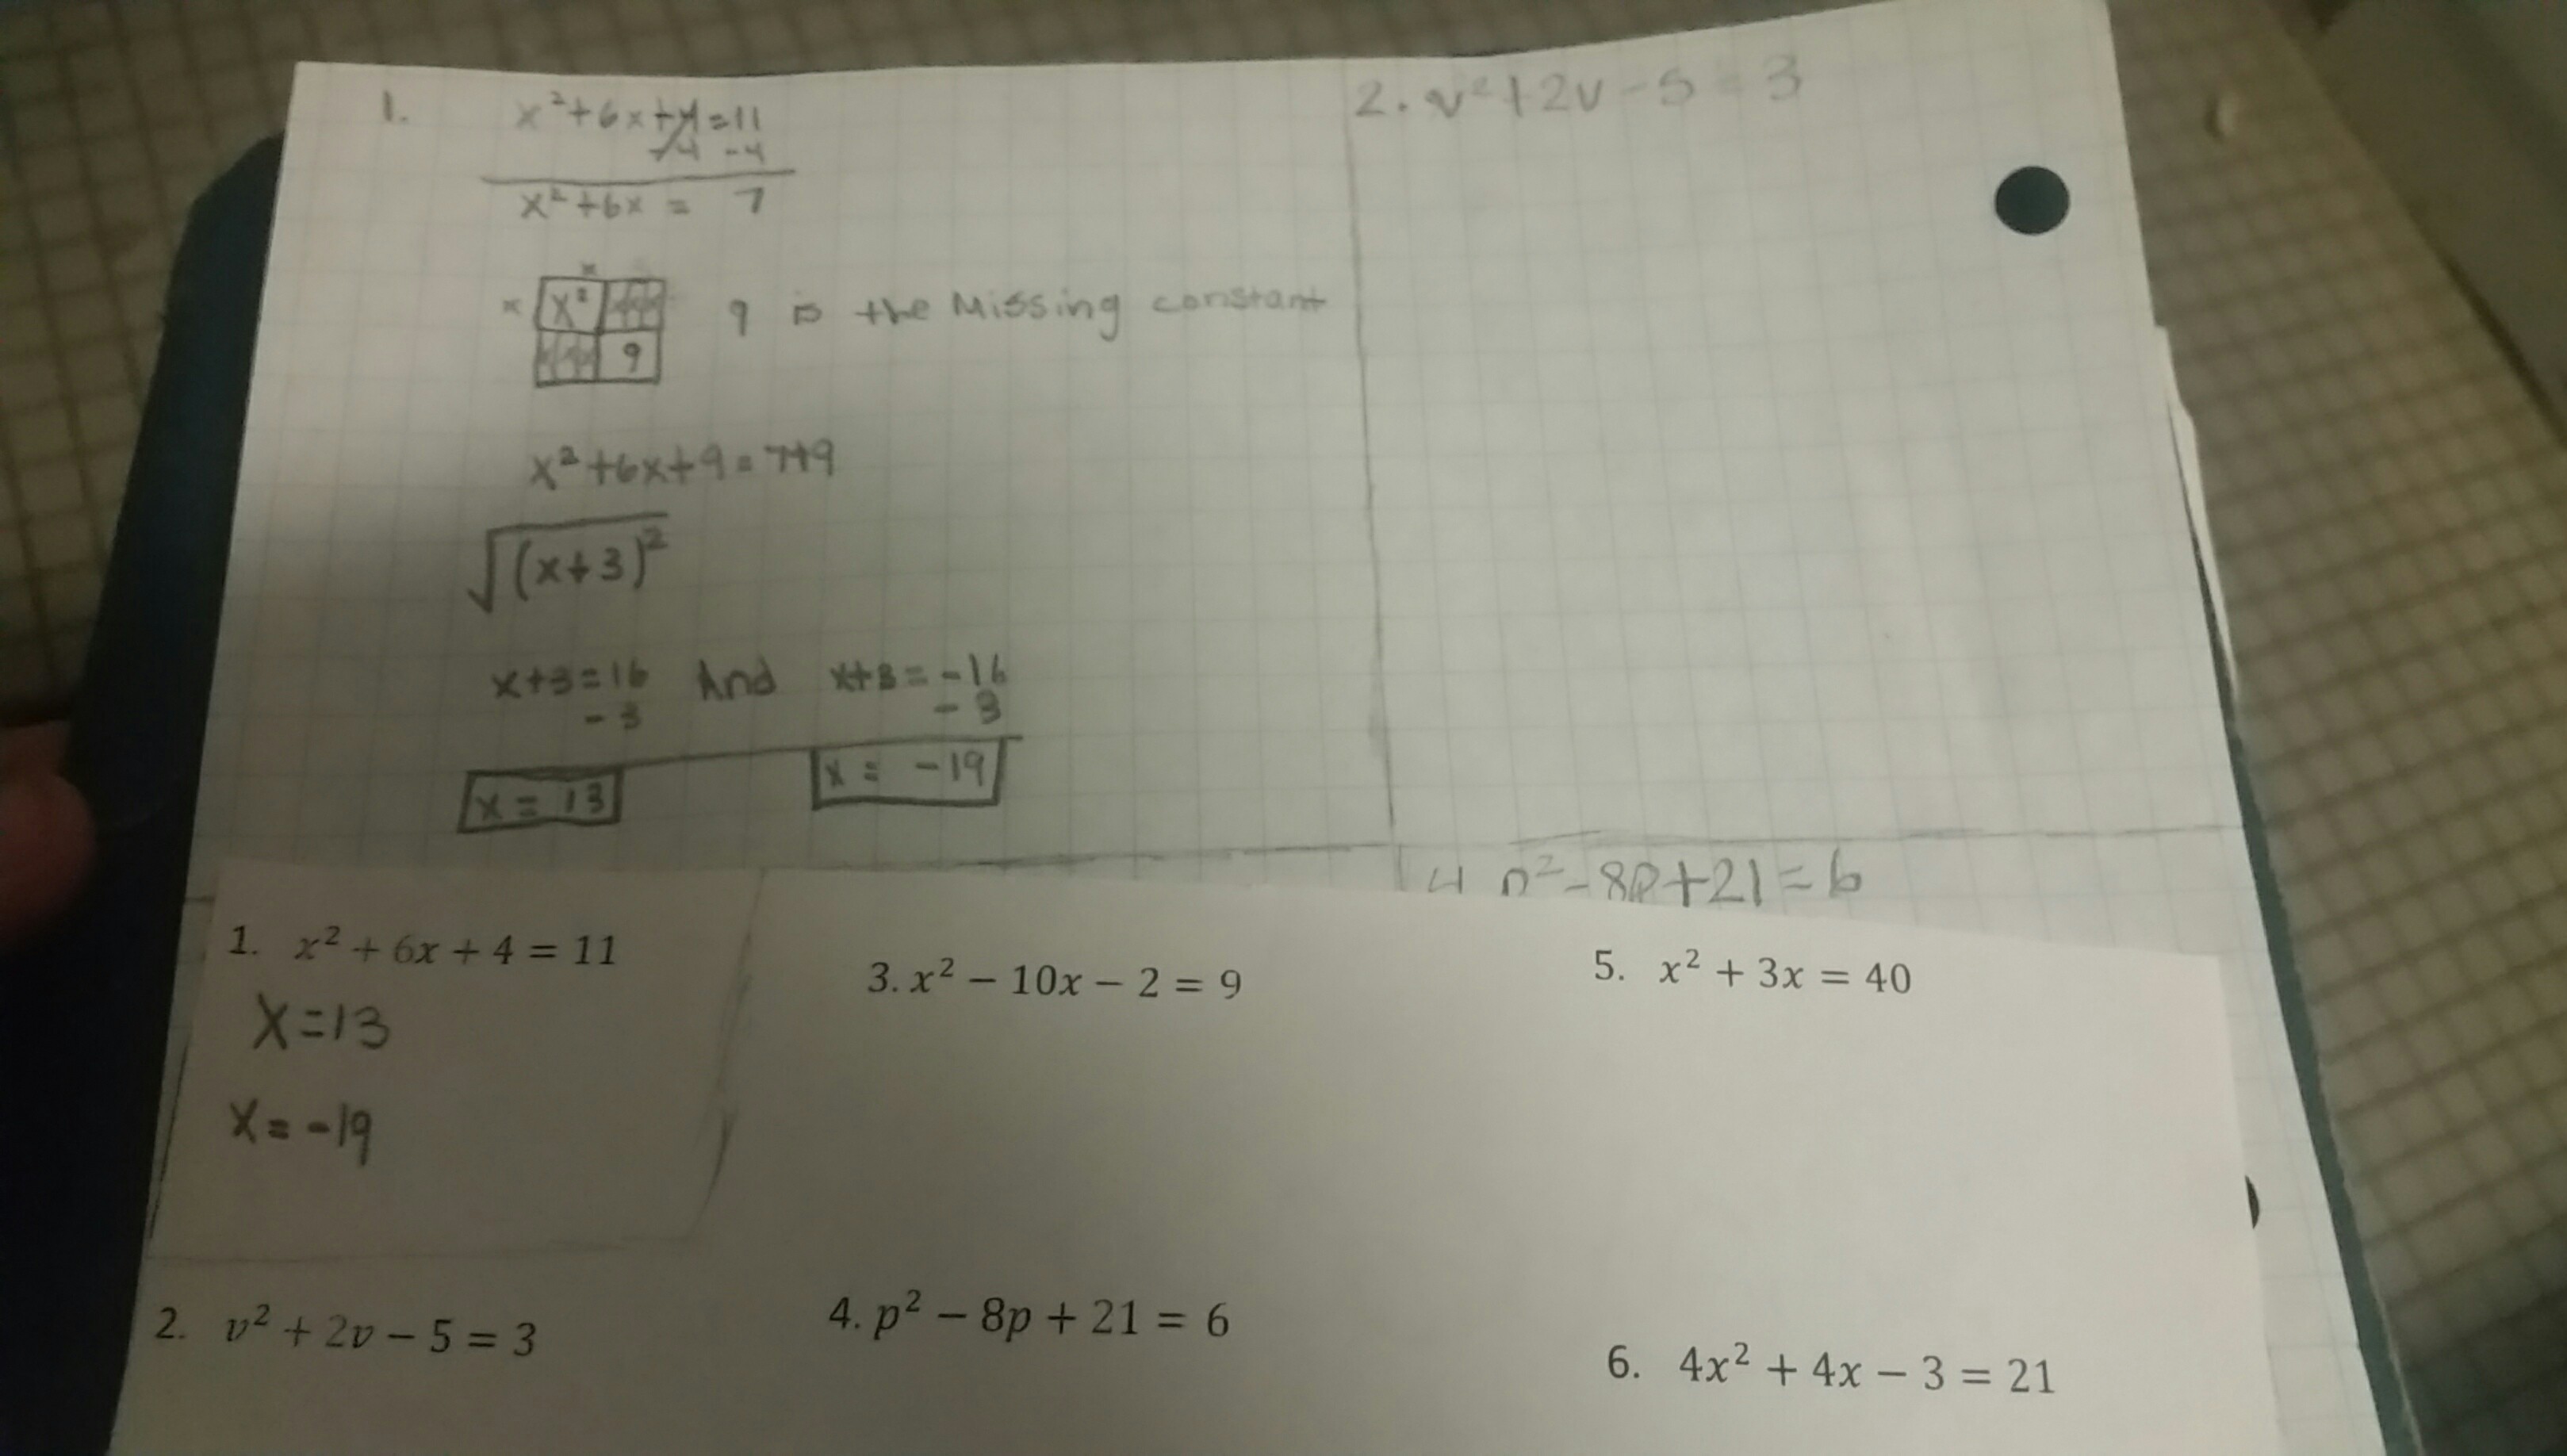 1. x²+6x+4=11
-4 -4
x²+6x = 7
x
x x² 9 is the Missing constant
9
x²+6x+9=7+9
√(x+3)²
x+3=16 And x+3=-16
-3 -3
x = 13 x = -19
2. v²+2v-5=3
4 p²-8p+21=6
1. x² + 6x + 4 = 11
X=13
X=-19
2. v² + 2v − 5 = 3
3. x² − 10x − 2 = 9
4. p² − 8p + 21 = 6
5. x² + 3x = 40
6. 4x² + 4x − 3 = 21